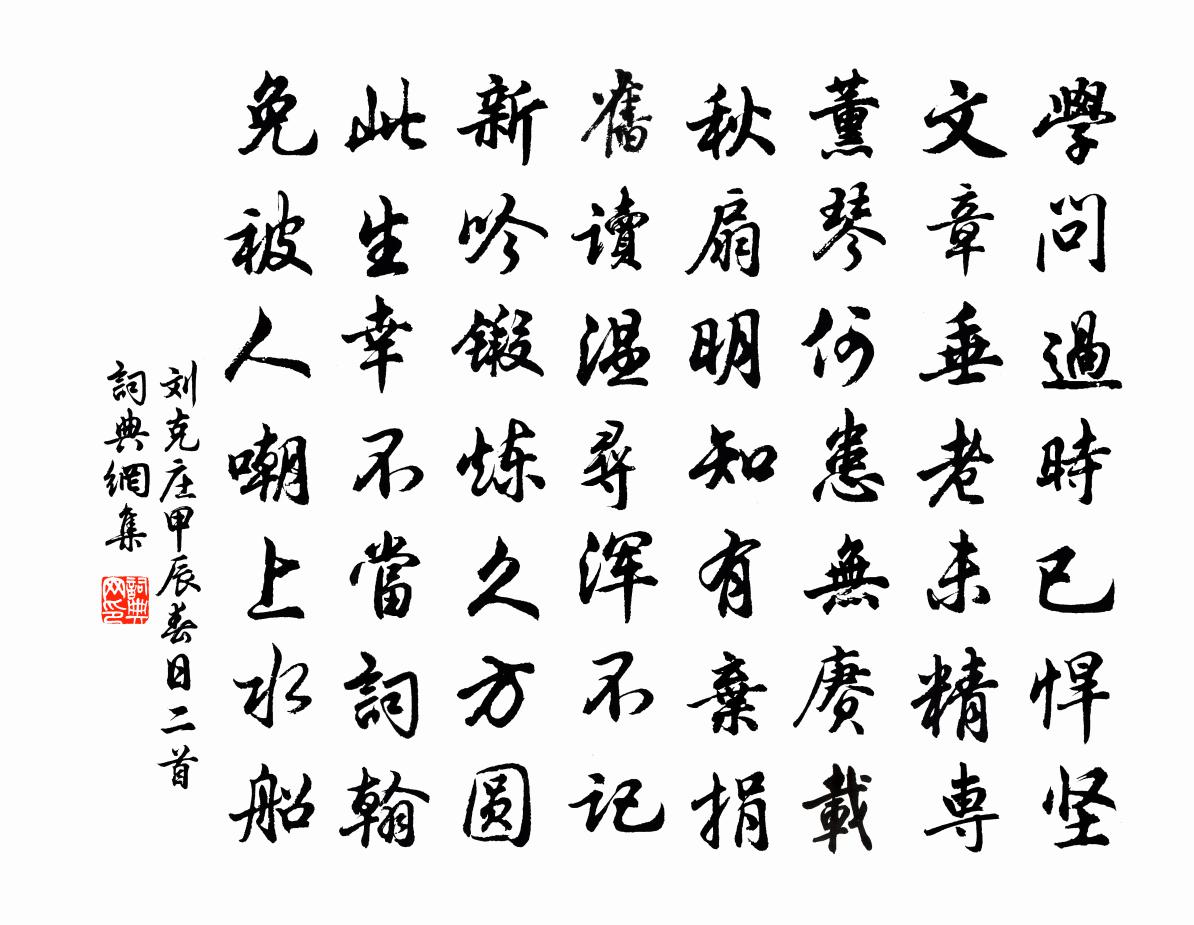 學問過時已悍坚
文章垂老未精専
薰琴何患無赓載
秋扇明知有棄捐
舊讀温尋浑不記
新吟鍛炼久方圆
此生幸不當詞翰
免被人嘲上水船
刘克庄甲辰春日二首
詞典網集
詞典網印